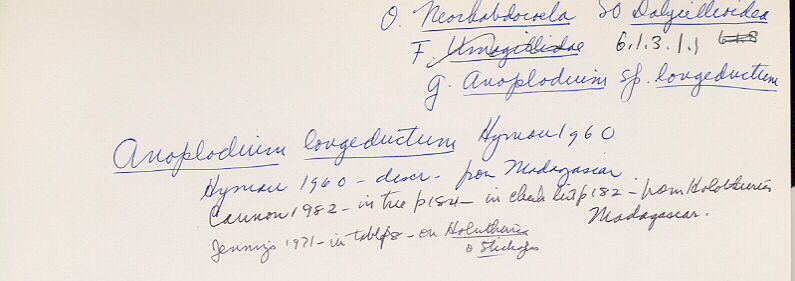 O. Neorhabdocoela SO Dalyellioidea
F. Umagillidae 6.1.3.1.1 6.1.8
g. Anoplodium sp. longeductum
Anoplodium longeductum Hyman 1960
Hyman 1960 - descr. from Madagascar
Cannon 1982 - in tree p184 - in check list p182 - from Holothuria
Madagascar.
Jennings 1971 - in table 8 - on Holuthuria
& Stichopus